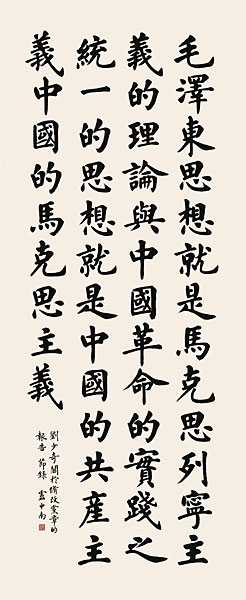 毛澤東思想就是馬克思列寧主
義的理論與中國革命的實踐之
統一的思想就是中國的共產主
義中國的馬克思主義
劉少奇關於修改黨章的
報告 節錄 盧中南